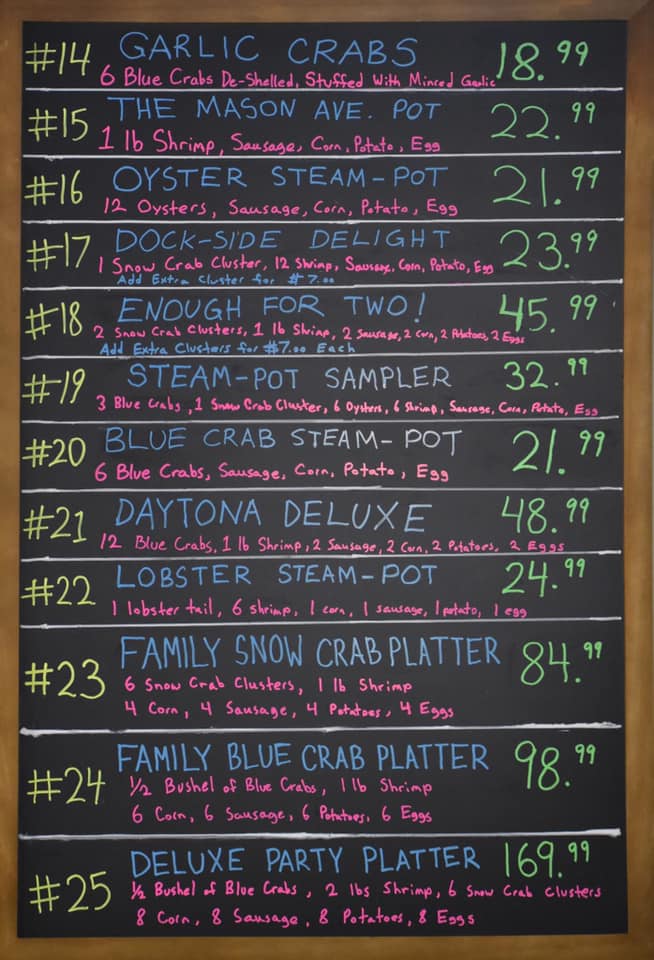 #14 GARLIC CRABS 18.99
6 Blue Crabs De-Shelled, Stuffed With Minced Garlic
#15 THE MASON AVE. POT 22.99
1 lb Shrimp, Sausage, Corn, Potato, Egg
#16 OYSTER STEAM-POT 21.99
12 Oysters, Sausage, Corn, Potato, Egg
#17 DOCK-SIDE DELIGHT 23.99
1 Snow Crab Cluster, 12 Shrimp, Sausage, Corn, Potato, Egg
Add Extra Cluster for $7.00
#18 ENOUGH FOR TWO! 45.99
2 Snow Crab Clusters, 1 lb Shrimp, 2 Sausage, 2 Corn, 2 Potatoes, 2 Eggs
Add Extra Clusters for $7.00 Each
#19 STEAM-POT SAMPLER 32.99
3 Blue Crabs, 1 Snow Crab Cluster, 6 Oysters, 6 Shrimp, Sausage, Corn, Potato, Egg
#20 BLUE CRAB STEAM-POT 21.99
6 Blue Crabs, Sausage, Corn, Potato, Egg
#21 DAYTONA DELUXE 48.99
12 Blue Crabs, 1 lb Shrimp, 2 Sausage, 2 Corn, 2 Potatoes, 2 Eggs
#22 LOBSTER STEAM-POT 24.99
1 lobster tail, 6 shrimp, 1 corn, 1 sausage, 1 potato, 1 egg
#23 FAMILY SNOW CRAB PLATTER 84.99
6 Snow Crab Clusters, 1 lb Shrimp
4 Corn, 4 Sausage, 4 Potatoes, 4 Eggs
#24 FAMILY BLUE CRAB PLATTER 98.99
1/2 Bushel of Blue Crabs, 1 lb Shrimp
6 Corn, 6 Sausage, 6 Potatoes, 6 Eggs
#25 DELUXE PARTY PLATTER 169.99
1/2 Bushel of Blue Crabs, 2 lbs Shrimp, 6 Snow Crab Clusters
8 Corn, 8 Sausage, 8 Potatoes, 8 Eggs